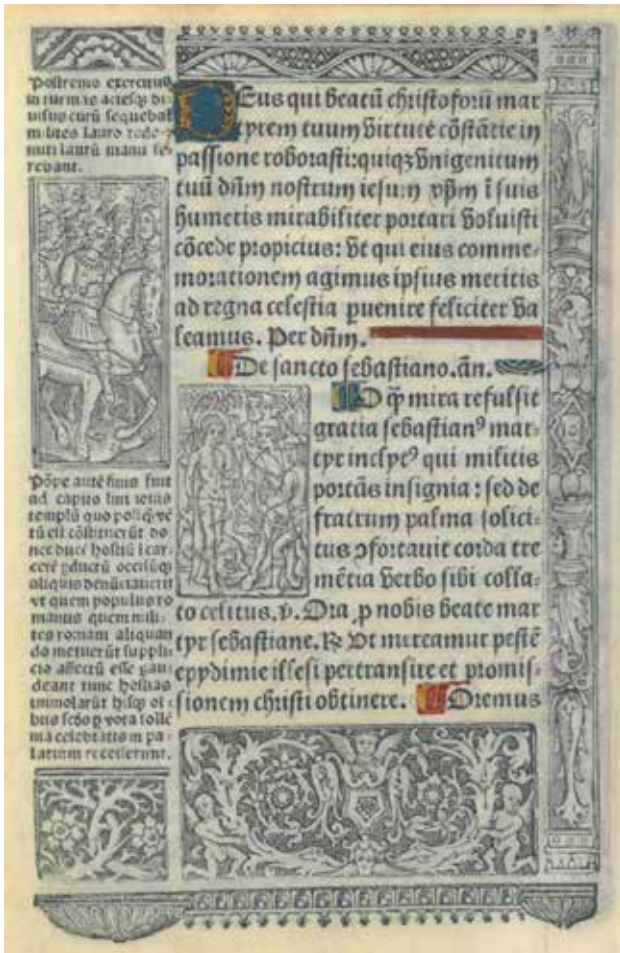 Postremo exercitus
in turmas aciesq̄ di
uisus currū sequebat
milites lauro redi
miti laurū manu fe
rebant.
Pōpe autē finis fuit
ad capito lini iouis
templū quo posiq̄ vē
tū est cōstiterūt do
nec ducē hostiū ī car
cerē pductū occisūq̄
aliquis denūciauerit
vt quem populus ro
manus quem mili-
tes romani aliquan
do metuerūt suppli
cio affectū esse gau-
deant tunc hostias
immolarūt hisq̄ oī
bus
celebratis in pa-
latium recesserunt.
DEus qui beatū christoforū mar
tyrem tuum virtute cōstātie in
passione roborasti: quiqz vnigenitum
tuū dn̄m nostrum iesum xp̄m ī suis
humeris mirabiliter portari voluisti
cōcede propicius: vt qui eius comme-
morationem agimus ipsius meritis
ad regna celestia puenire feliciter va
leamus. Per dn̄m.
De sancto sebastiano. ān.
O q̄ mira refulsit
gratia sebastianꝰ mar-
tyr inclytꝰ qui militis
portās insignia: sed de
fratrum palma solici-
tus ↄfortauit corda tre
mētia verbo sibi colla-
to celitus. v̄. Ora p nobis beate mar
tyr sebastiane. ℞ Vt mereamur pestē
epydimie illesi pertransire et promis-
sionem christi obtinere. Oremus